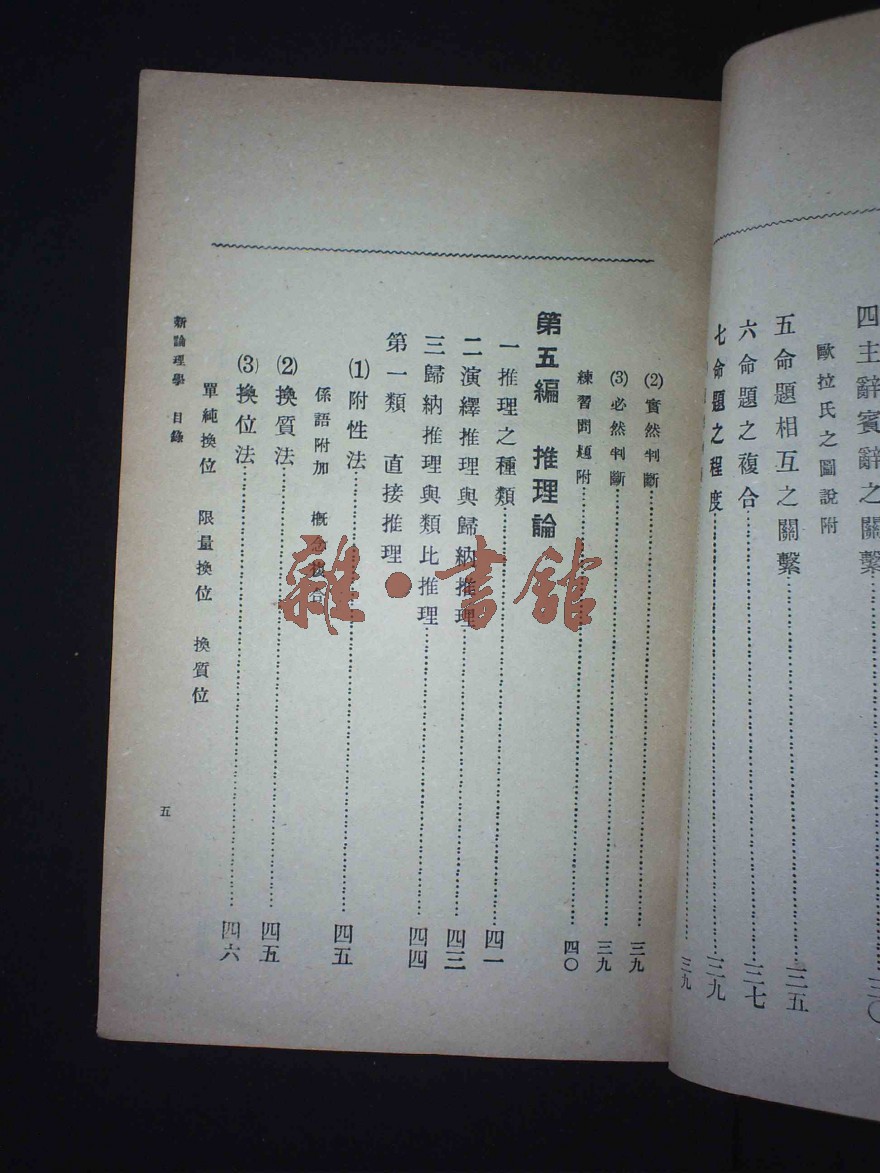 四主辭賓辭之關繫…三〇
歐拉氏之圖說附
五命題相互之關繫…三五
六命題之複合…三七
七命題之程度…三九
三九
⑵實然判斷…三九
⑶必然判斷…三九
練習問題附…四〇
第五編 推理論
一推理之種類…四一
二演繹推理與歸納推理…四三
三歸納推理與類比推理…四四
第一類 直接推理
⑴附性法…四五
係語附加 概念
⑵換質法…四五
⑶換位法…四六
單純換位 限量換位 換質位
新論理學 目錄
五
雜·書館